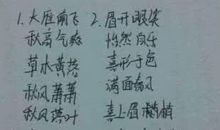 1.大雁南飞 2.眉开眼笑
秋高气爽 怡然自乐
草木黄枯 喜形于色
秋风萧萧 满面春风
秋风落叶 喜上眉梢